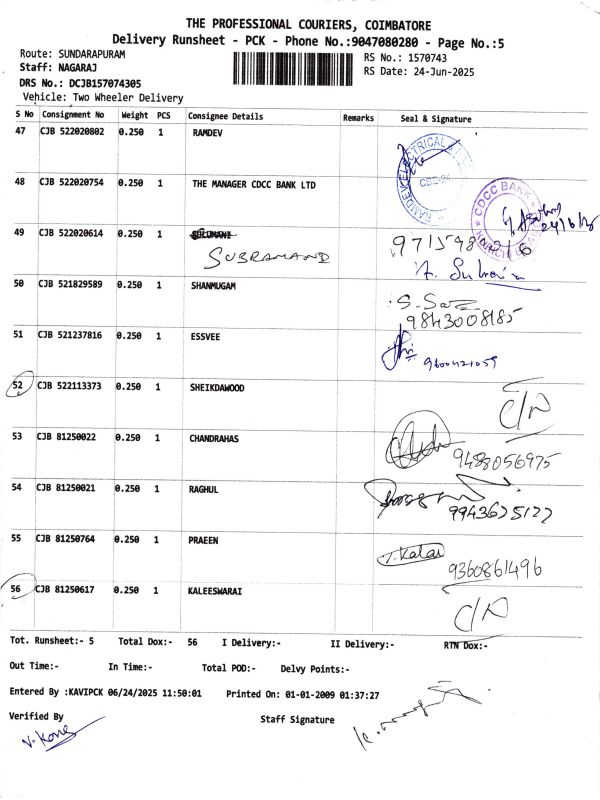 THE PROFESSIONAL COURIERS, COIMBATORE
Delivery Runsheet - PCK - Phone No.:9047080280 - Page No.:5
Route: SUNDARAPURAM
RS No.: 1570743
Staff: NAGARAJ
RS Date: 24-Jun-2025
DRS No.: DCJB157074305
Vehicle: Two Wheeler Delivery
S No Consignment No Weight PCS Consignee Details Remarks Seal & Signature
47 CJB 522020802 0.250 1 RAMDEV
48 CJB 522020754 0.250 1 THE MANAGER CDCC BANK LTD
CDCC BANK
24/6/25
49 CJB 522020614 0.250 1
SUBRAMANI
50 CJB 521829589 0.250 1 SHANMUGAM
9843008185
51 CJB 521237816 0.250 1 ESSVEE
9600421059
52 CJB 522113373 0.250 1 SHEIKDAWOOD
53 CJB 81250022 0.250 1 CHANDRAHAS
9488056975
54 CJB 81250021 0.250 1 RAGHUL
55 CJB 81250764 0.250 1 PRAEEN
T. Kalai
9360861496
56 CJB 81250617 0.250 1 KALEESWARAI
Tot. Runsheet:- 5 Total Dox:- 56 I Delivery:- II Delivery:- RTN Dox:-
Out Time:- In Time:- Total POD:- Delvy Points:-
Entered By :KAVIPCK 06/24/2025 11:50:01 Printed On: 01-01-2009 01:37:27
Verified By Staff Signature